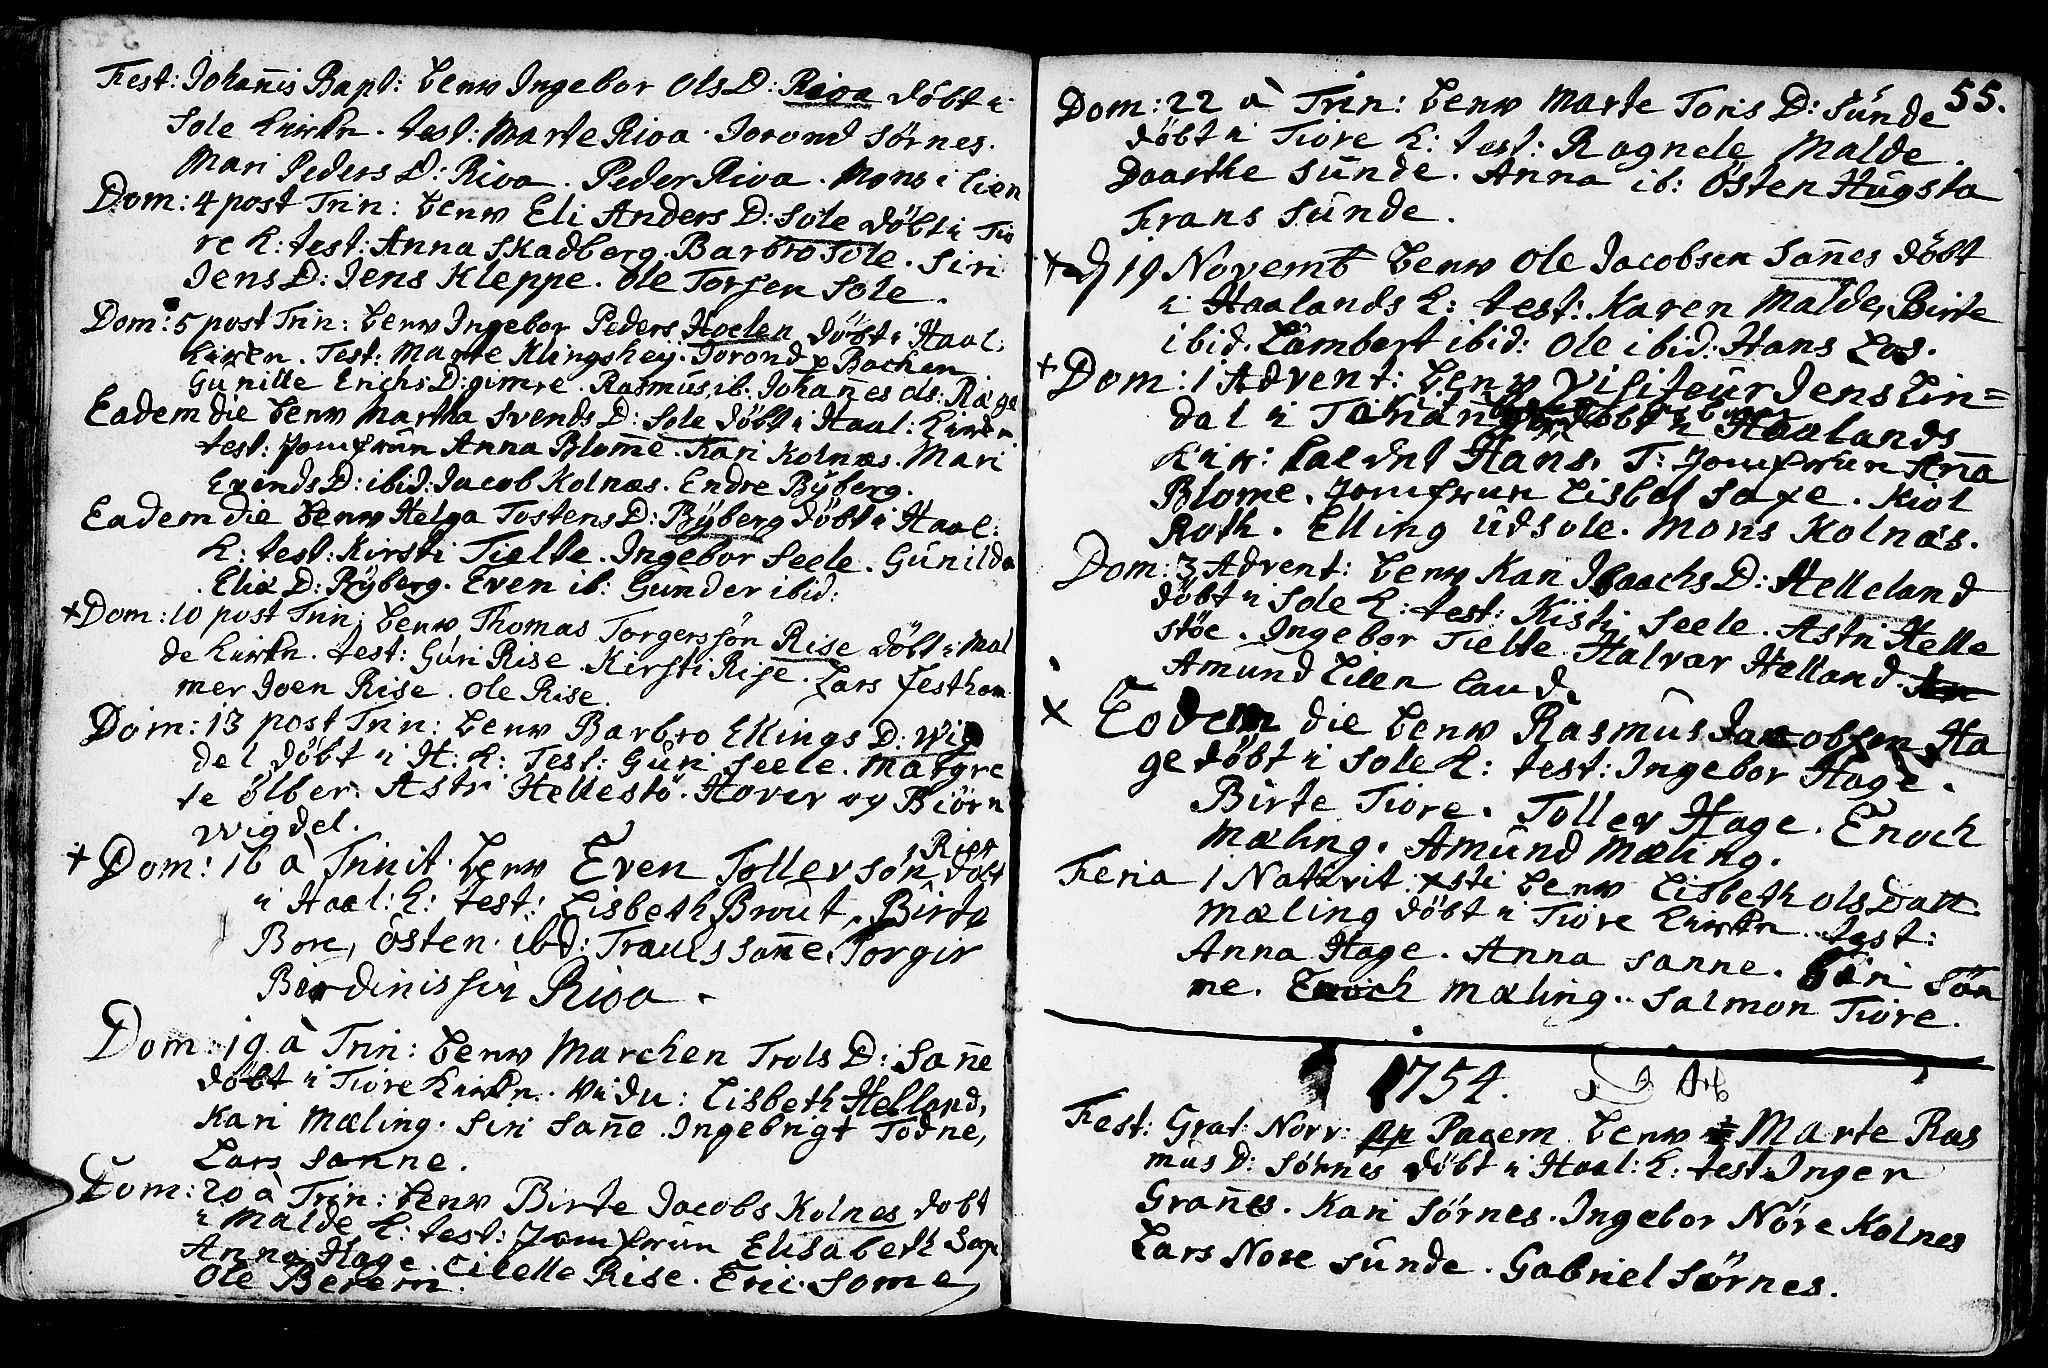 Fest: Johanis Bapt: benw Ingebor Ols D: Riva döbt i
Sole kirkn. test: Marte Riva. Jorond Sörnes.
Mari Peders D: Riva. Peder Riva. Mons i lien
Dom: 4 post Trin: benw Eli Anders D: Sole döbt i Tio
re k: test: Anna Skadberg. Barbro Sole. Siri
Jens D: Jens Kleppe. Ole Torsen Sole.
Dom: 5 post Trin: benw Ingebor Peders Hoelen döbt i Haal:
kirken. Test: Marte Klingshey. Jorond p Bachen.
Gunille Erichs D: gimre. Rasmus ib: Johannes Ols: Ræge
Eadem die benw Martha Svends D: Sole döbt i Haal: kirkn
test: Jomfruun Anna Blome. Kari Kolnæs. Mari
Evinds D: ibid: Jacob Kolnæs. Endre Byberg.
Eadem die benw Helga Tostens D: Byberg döbt i Haal:
k: test: Kirsti Tielte. Ingebor Seele. Gunilda
Eliæ D: Byberg. Even ib: Gunder ibid:
+ Dom: 10 post Trin: benw Thomas Torgerssön Rise döbt i Mal
de kirkn. test: Guri Rise. Kirsti Rise. Lars Jesthom
mer Joen Rise. Ole Rise.
Dom: 13 post Trin: benw Barbro Ellings D: Wig
del döbt i H: k: Test: Guri Seele. Margre
te ölber. Astri Hellestö. Hover og Biörn
Wigdel.
+ Dom: 16 à Trinit. benw Even Tollersön Rien döbt
i Haal: k: test: Lisbeth Brout, Birte
Bore, Östen ibd: Trauls Sanne. Torgir
Riva.
Dom: 19 à Trin: benw Marchen Trols D: Sañe
döbt i Tiore kirkn. Vidu: Lisbeth Helland,
Kari Mæling. Siri Sañe. Ingebrigt Todne,
Lars Sanne.
Dom: 20 à Trin: benw Birte Jacobs Kolnes dobt
i Malde k: test: Jomfruun Elisabeth Saxe
Anna Hage. Cicelle Rise. Eric Some
Ole Berem.
55.
Dom: 22 à Trin: benw Marte Toris D: Sunde
döbt i Tiore k: test: Ragnele Malde.
Daarthe Sunde. Anna ib: Östen Hugsta
Frans Sunde.
+ d 19 Novemb benw Ole Jacobsen Sañes döbt
i Haalands k: test: Karen Malde, Birte
ibid. Lambert ibid: Ole ibid: Hans Los.
+ Dom: 1 Advent: benw Visiteur Jens Lin=
dal i döbt i Haalands
kirk: kaldet Hans. T: Jomfruun Aña
Blome. Jomfruun Lisbet Saxe. Kiol
Roth. Elling Udsole. Mons Kolnæs.
Dom: 3 Advent: benw Kari Isaachs D: Helleland
döbt i Sole k: test: Kisti Seele. Astri Helle
stöe. Ingebor Tielte. Halvar Helland.
Amund
x Eodem die benw Rasmus Jacobsen Ha
ge döbt i Sole k: test: Ingebor Hage.
Birte Tiore. Toller Hage. Enoch
Mæling. Amund Mæling.
Feria 1 Nativit. xsti benw Lisbeth Ols Datt.
Mæling döbt i Tiore kirkn. test:
Anna Hage. Anna Sanne. Siri Sön
me. Enoch Mæling. Salmon Tiore.
1754.
Fest: Grat: Norv: pp Pacem benw Marte Ras
mus D: Sörnes döbt i Haal: k: test: Inger
Grañes. Kari Sörnes. Ingebor Nöre Kolnes
Lars Nore Sunde. Gabriel Sörnes.